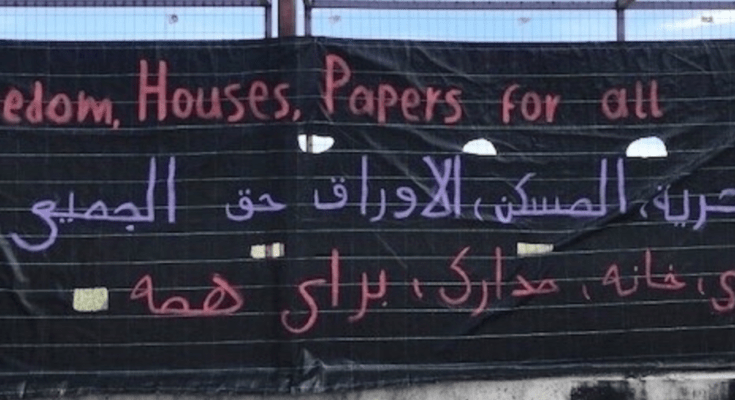 edom, Houses, Papers for all
حرية، المسكن، الاوراق حق الجميع
ی، خانه، مدارک، برای همه